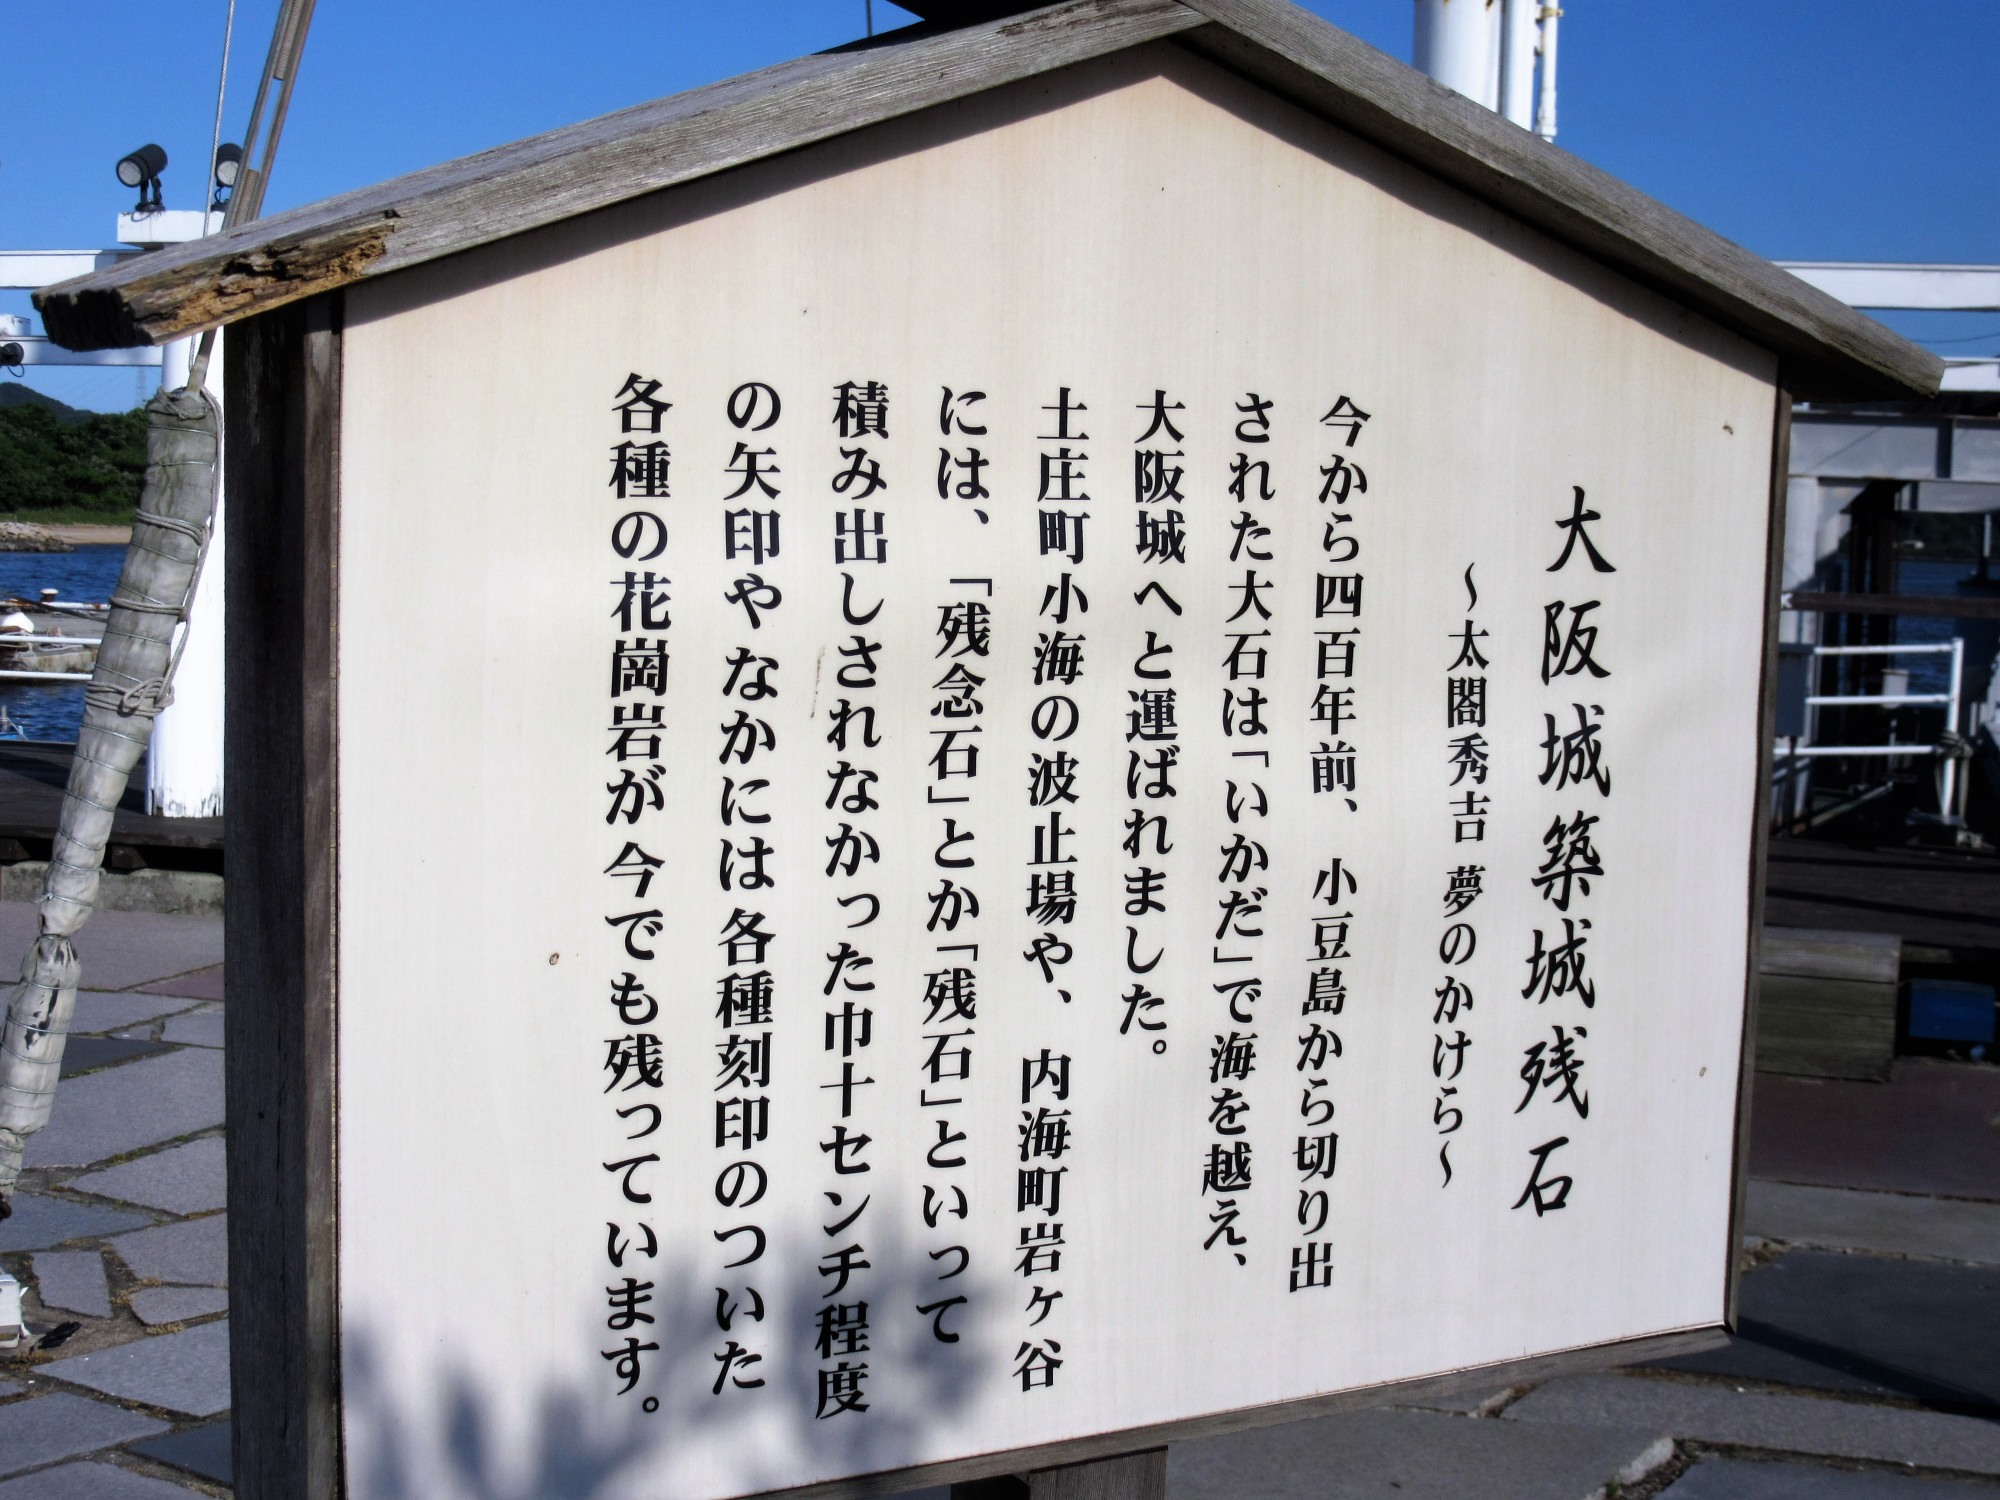 大阪城築城残石
～太閤秀吉 夢のかけら～
今から四百年前、小豆島から切り出
された大石は「いかだ」で海を越え、
大阪城へと運ばれました。
土庄町小海の波止場や、内海町岩ヶ谷
には、「残念石」とか「残石」といって
積み出しされなかった巾十センチ程度
の矢印やなかには各種刻印のついた
各種の花崗岩が今でも残っています。